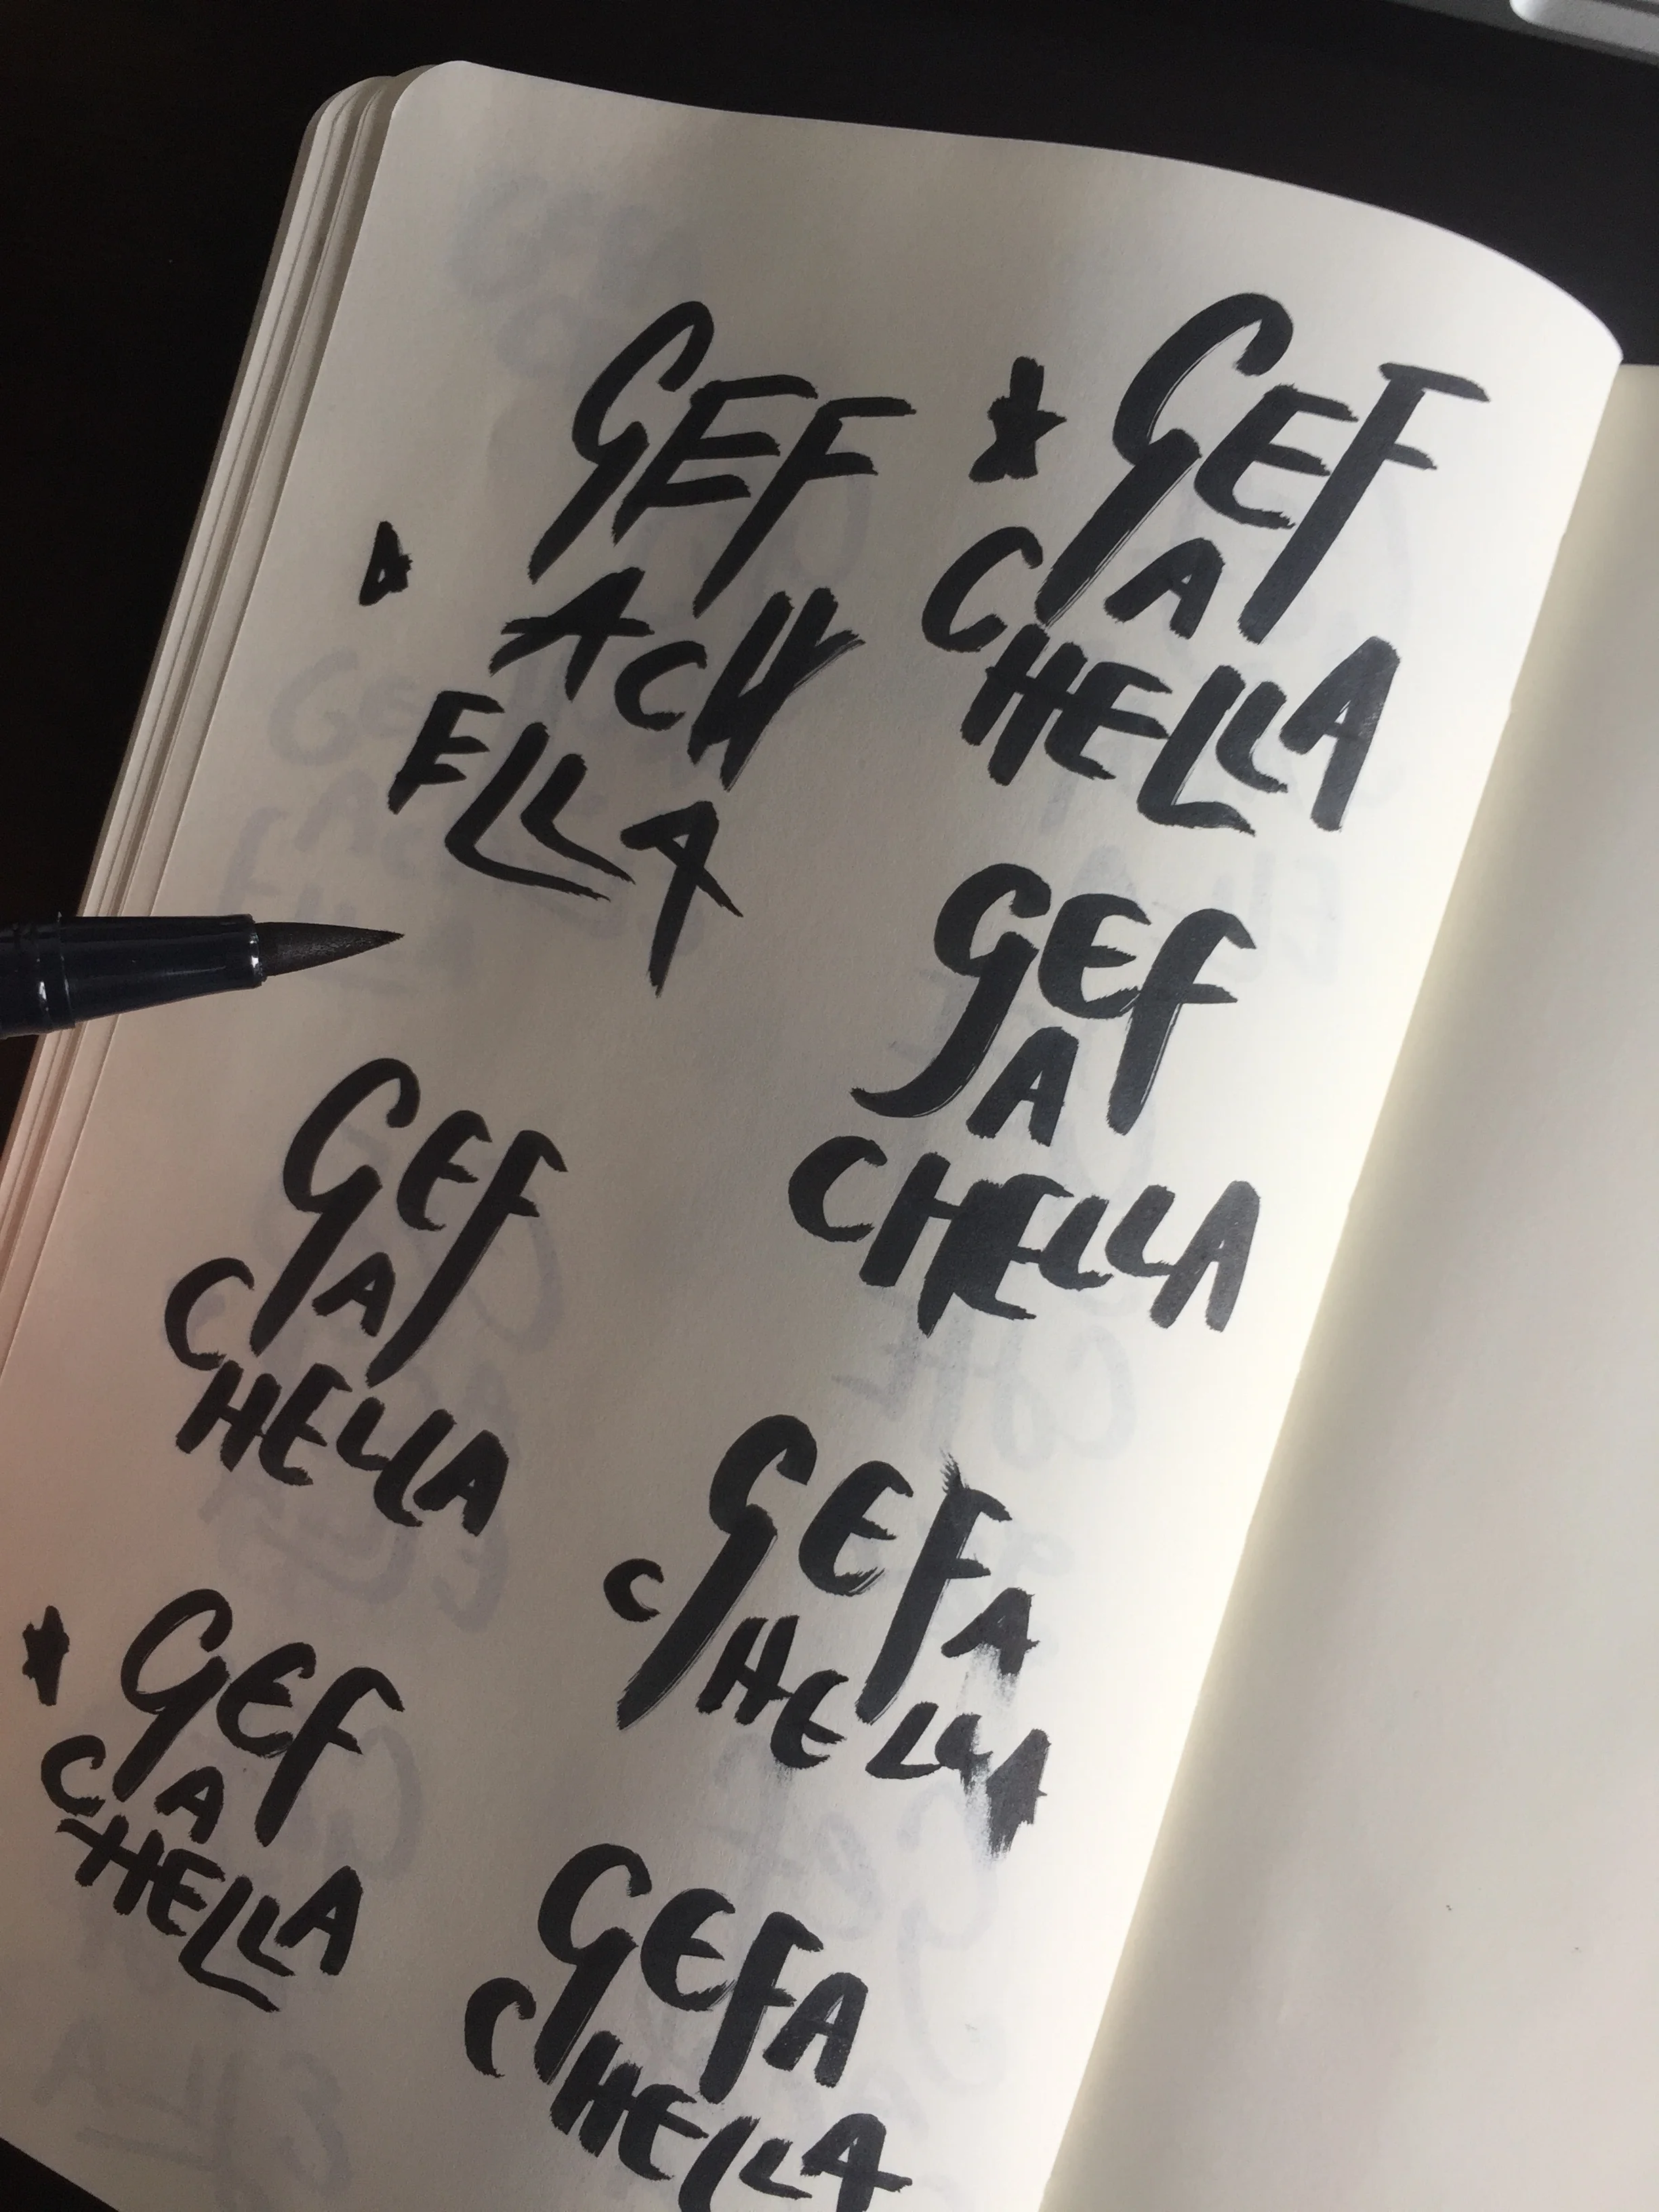 GEF
ACH
ELLA
GEF
CA
HELLA
GEF
A
CHELLA
GEF
CA
HELLA
GEFA
CHELLA
GEF
CA
HELLA
GEFA
CHELLA